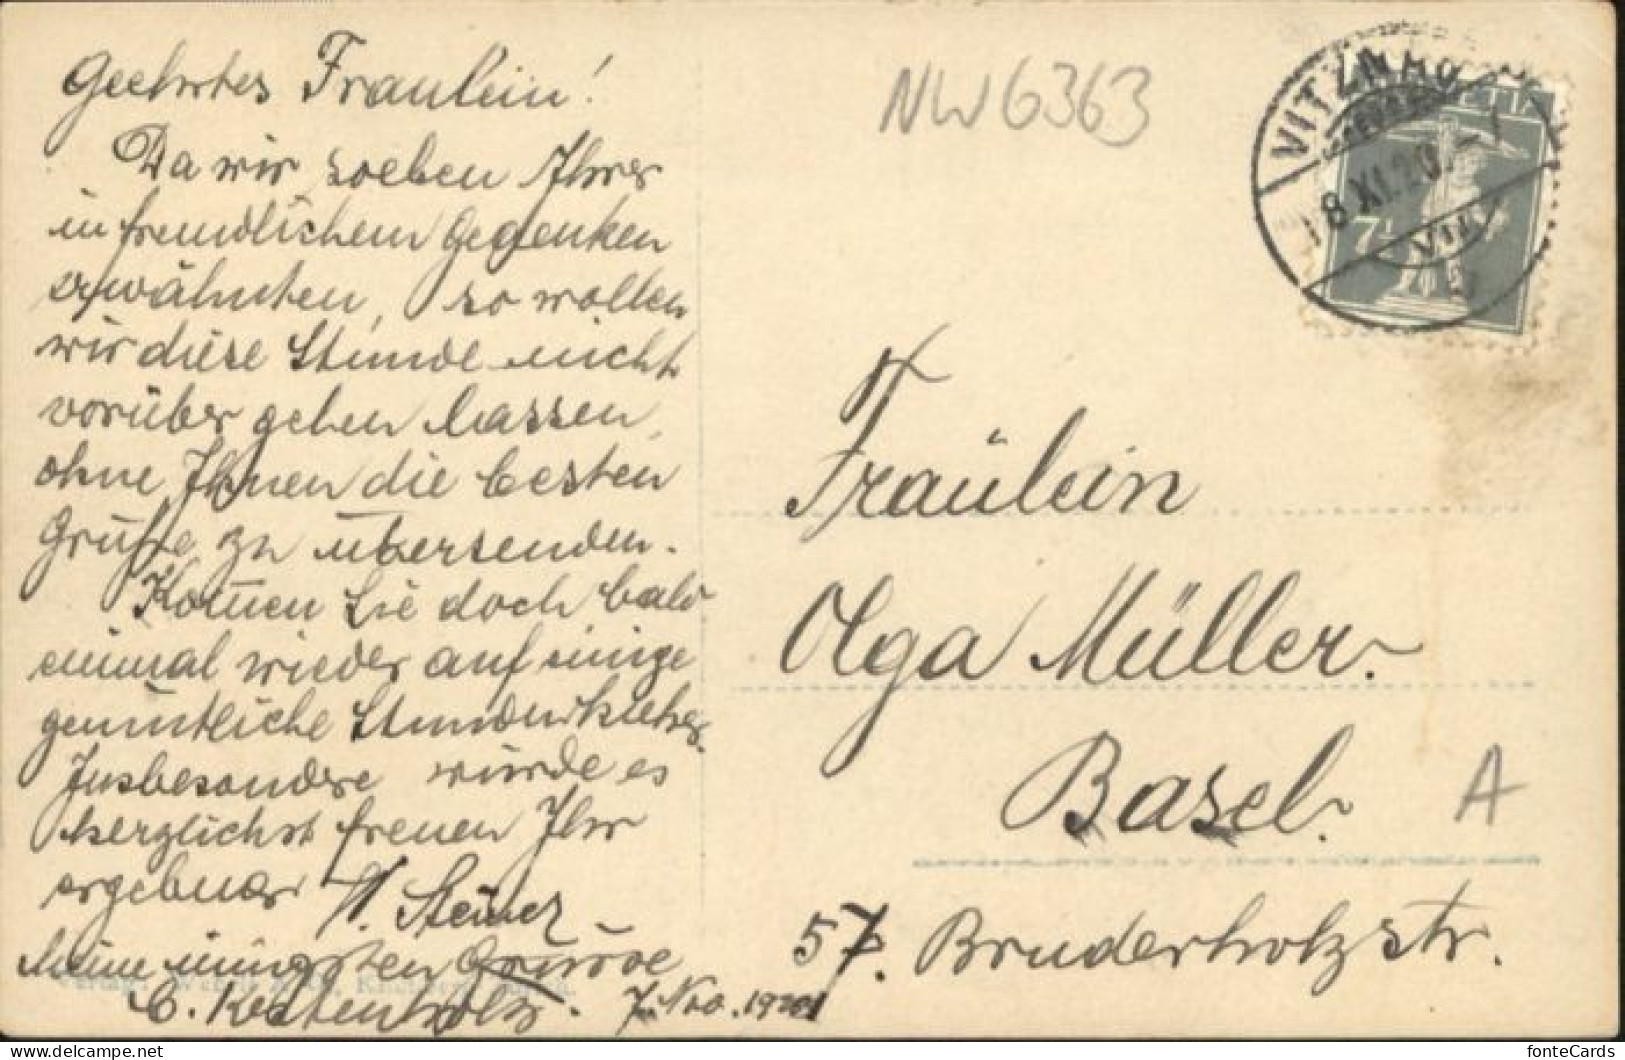 Geehrtes Fraulein!
Da wir soeben Ihrer
in freundlichem Gegenken
erwähnten, so wollen
wir diese Stunde nicht
vorüber gehen lassen,
ohne Ihnen die besten
Grüße zu übersenden.
Kommen Sie doch bald
einmal wieder auf einige
gemütliche Stunden
Insbesondere würde es
herzlichst freuen Ihr
ergebener
Steiner
Meine innigsten Grüsse
C. Kestenholz. 7. Nov. 1920
Verlag:
NW6363
VITZNAU
8.XI.20.-7
HELVETIA
7½
Fräulein
Olga Müller.
Basel.
A
57. Bruderholzstr.
fonteCards